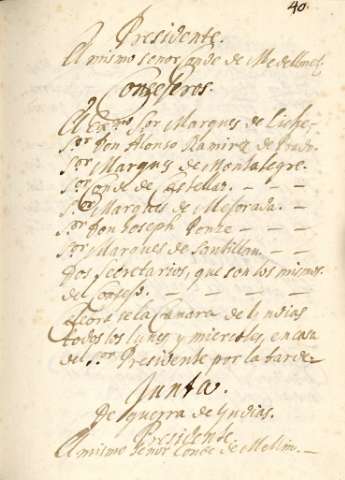 40.
Presidente.
El mismo señor Conde de Medellin.
Conzejeros.
El Exmo Sor Marques de Liche,
Sor Don Alonso Ramirez de Prado.
Sor Marques de Montalegre.
Sor Conde de Castellar. — — —
Sor Marques de Mejorada. —
Sor Don Joseph Ponze — — —
Sor Marques de Santillan. —
Dos Secretarios, que son los mismos
del Consejo. — — — —
de la Camara de Yndias
todos los lunes y miercoles, en casa
del sor Presidente por la tarde
Junta.
De guerra de Yndias.
Presidente.
El mismo Señor Conde de Medlin. —